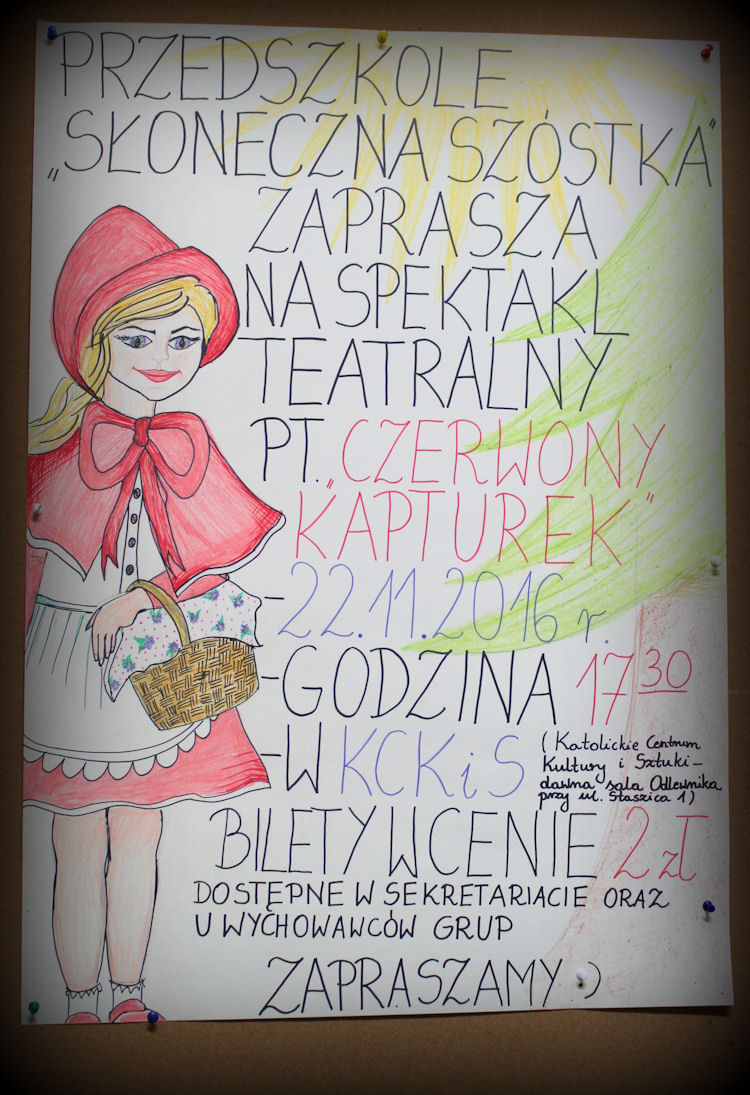 PRZEDSZKOLE
„SŁONECZNA SZÓSTKA"
ZAPRASZA
NA SPEKTAKL
TEATRALNY
PT. „CZERWONY
KAPTUREK"
- 22.11.2016 r.
- GODZINA 17 30
- W KCKiS (Katolickie Centrum
Kultury i Sztuki -
dawna sala Odlewnika
przy ul. Staszica 1)
BILETY W CENIE 2 zł
DOSTĘPNE W SEKRETARIACIE ORAZ
U WYCHOWAWCÓW GRUP
ZAPRASZAMY :)